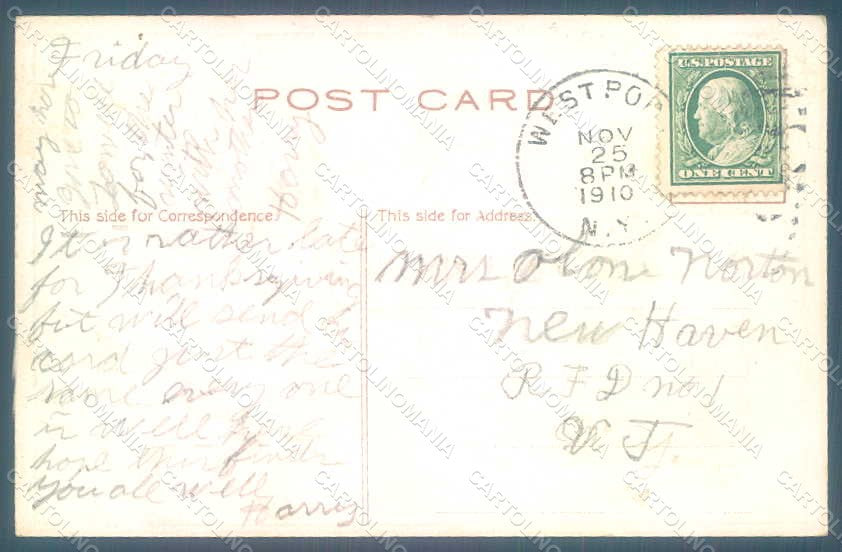 Friday
POST CARD
WESTPOR
NOV
25
8 PM
1910
N.Y.
U.S. POSTAGE
ONE CENT
This side for Correspondence
This side for Address.
It is rather late
for Thanksgiving
but will send a
card just the
same every one
is well here
hope this finds
you all well
Harry
Mrs Norton
New Haven
R F D no 1
V T.
CARTOLINOMANIA